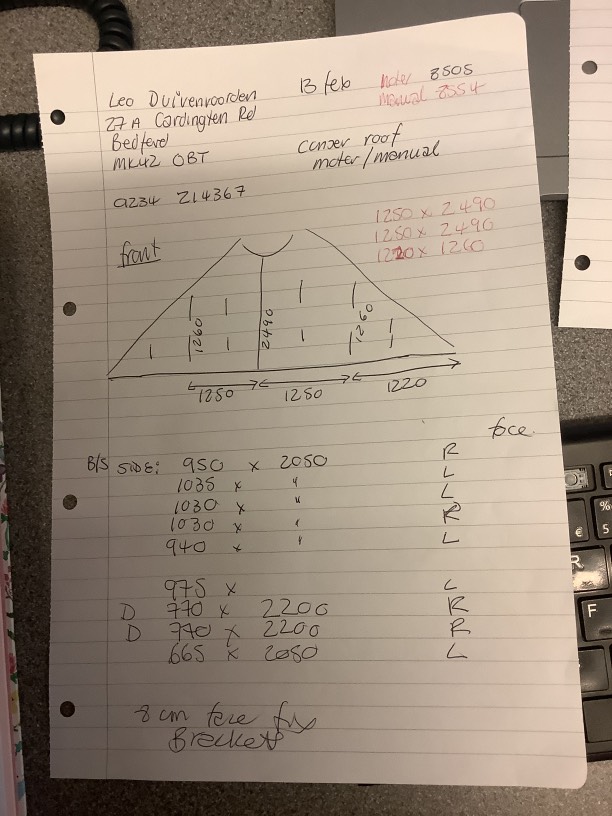 Leo Duivenvoorden
27A Cardington Rd
Bedford
MK42 0BT
13 feb
Moter 8505
manual 8554
conser roof
moter/manual
0234 214367
1250 x 2490
1250 x 2490
1220 x 1260
front
1260
2490
1260
1250
1250
1220
face
B/S SIDE: 950 x 2050 R
1035 x " L
1030 x " L
1030 x " R
940 x " L
975 x L
D 770 x 2200 R
D 740 x 2200 R
665 x 2050 L
8 cm face fix
Brackets
%
5
€
R
F